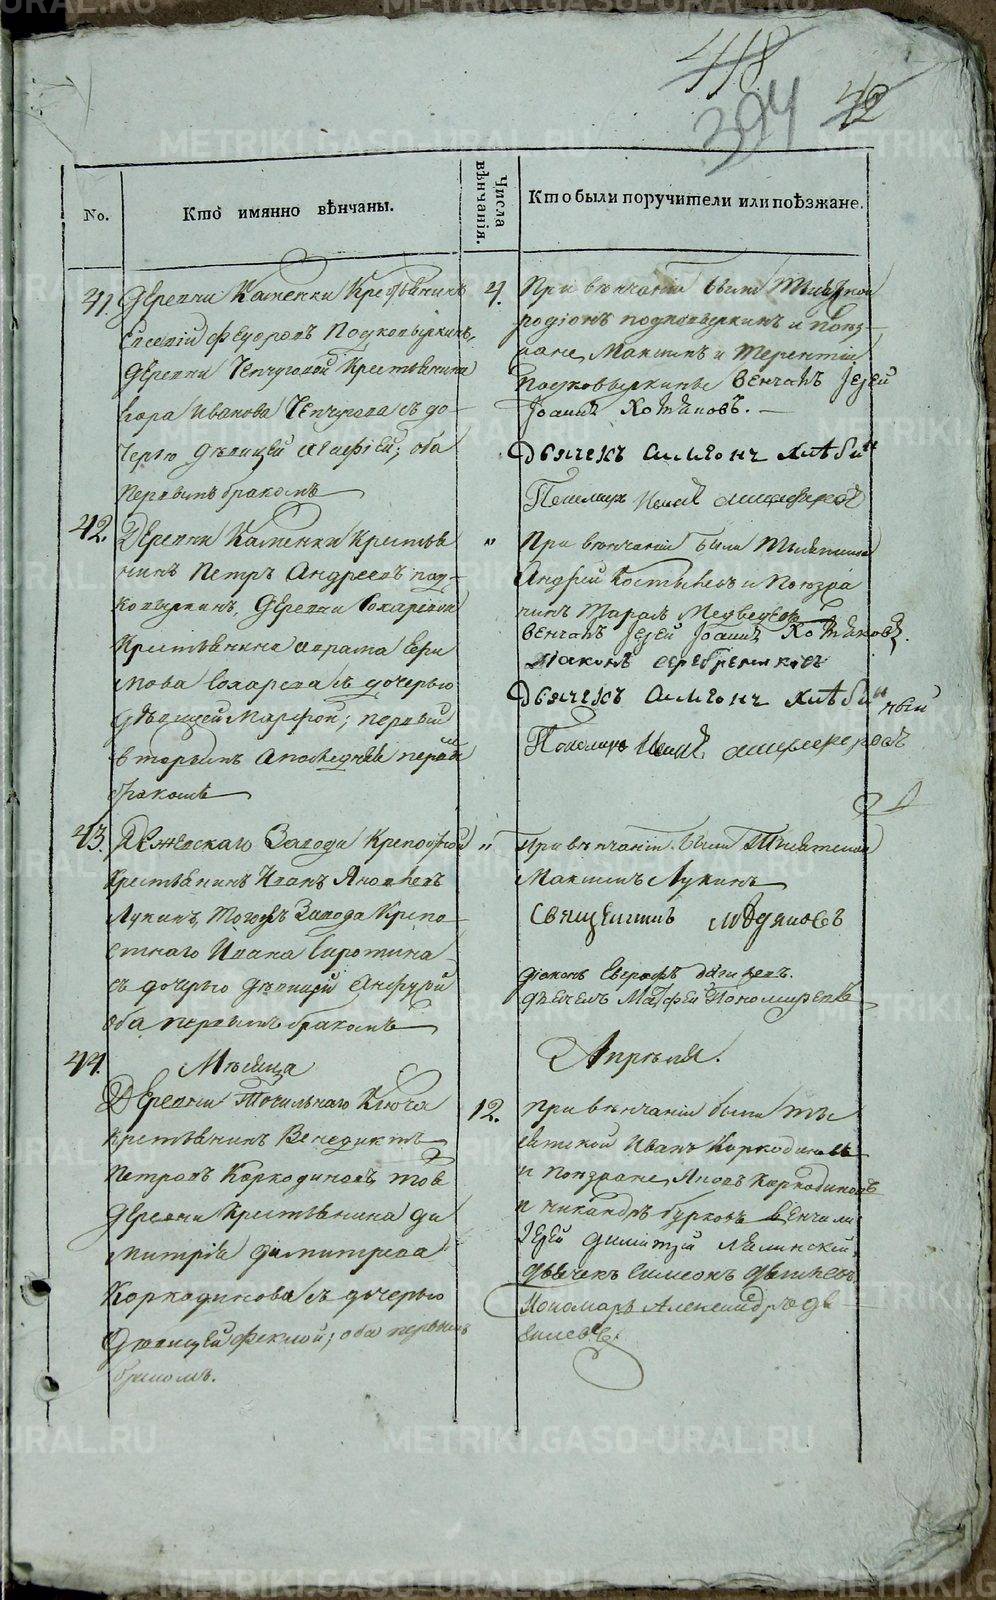 418
394
42
No.
Кто имянно вѣнчаны.
Числа вѣнчанія.
Кто были поручители или поѣзжане.
41. Деревни Каменки Крестьянинъ
Евсевій Федоровъ Подковыркинъ,
деревни Чепчуговой Крестьянина
Егора Иванова Чепчугова съ до-
черью дѣвицей Агафіей; оба
первымъ бракомъ
4. При вѣнчаніи были Тысяцкой
родіонъ подковыркинъ и поез-
жане, Максимъ и Терентій
Подковыркины венчалъ Іерей
Іоаннъ Хотяновъ.
Дьячекъ Симеонъ
Пономарь
42. Деревни Каменки Крестья
нинъ Петръ Андреевъ под-
ковыркинъ, деревни Сохаревой
Крестьянина Аврама Ефи
мова Сохарева съ дочерью
дѣвицей Марфой; первый
вторымъ а последняя первым
бракомъ
" При вѣнчаніи были Тысяцкой
Андрей Костылевъ и Поезжа
нинъ Тарасъ Медведевъ
венчалъ Іерей Іоаннъ Хотяновъ.
Діаконъ Серебрениковъ
Дьячекъ Симеонъ
Пономарь
43. Режевскаго Завода Крепостной
Крестьянинъ Иванъ Яковлевъ
Лукинъ, тогожъ Завода Крепо-
стнаго Ивана Сиротина
съ дочерью дѣвицей Анфусой
оба первымъ бракомъ
" При вѣнчаніи были Тысяцкой
Максимъ Лукинъ
Священникъ
діаконъ
дьячекъ Матфей Пономаревъ
Мѣсяца
Апрѣля.
44. Деревни Точильнаго Ключа
Крестьянинъ Венедиктъ
Петровъ Коркодиновъ тоя
деревни Крестьянина Ди
митрія Димитрева
Коркодинова съ дочерью
Дѣвицей Феклой; оба первымъ
бракомъ.
12. При вѣнчаніи были ты
сяцкой Иванъ Коркодиновъ
и поезжане, Яковъ Коркодиновъ
и никандръ Бурковъ венчали
Іерей Димитрій
дьячекъ Симеонъ
Пономарь Александръ